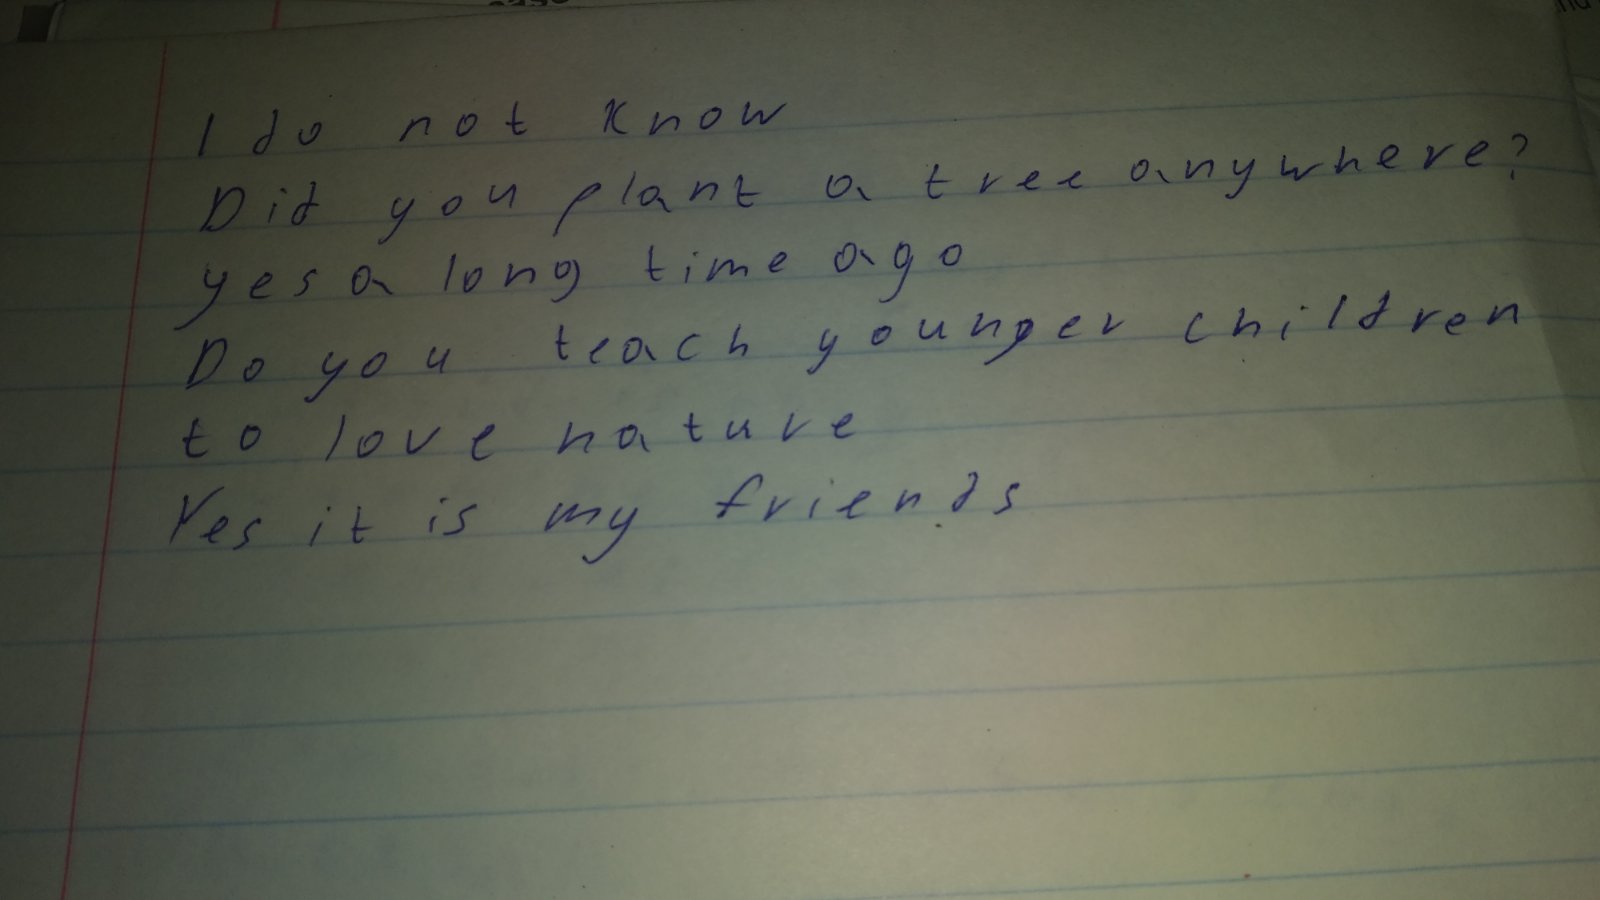 I do not know
Did you plant a tree anywhere?
yes a long time ago
Do you teach younger children
to love nature
Yes it is my friends